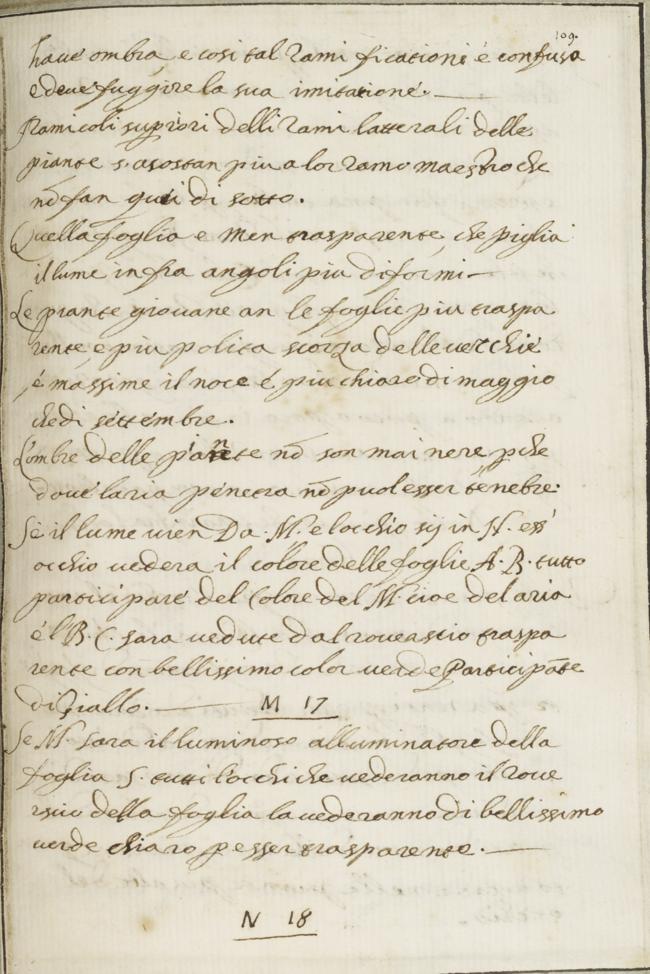 109.
haué ombra e cosi tal rami ficationi é confusa
e deue fuggire la sua imitatione.
Ramicoli supriori delli rami latterali delle
piante s'acostan piu a lor ramo maestro che
nō fan qu di sotto.
Quella foglia e men trasparente, che piglia
il lume infra angoli piu difformi
Le piante giouane an le foglie piu traspa
rente, e piu polita scorza delle vecchie
, é massime il noce é piu chiaro di maggio
che di settembre.
L'ombre delle piante nō son mai nere pche
doue laria penetra nō puol esser tenebre.
Se il lume uien Da. M. e locchio sij in N. ess'
occhio uedera il colore delle foglie A. B. tutto
participare del Colore del M. cioe del aria
é l B. C. sara uedute dal rouerscio traspa
rente con bellissimo color uerde Participāte
di Giallo.
M 17
Se M. sara il luminoso alluminatore della
foglia S. tutti l'occhi che uederanno il roue
rscio della foglia la uederanno di bellissimo
uerde chiaro p esser trasparente.
N 18